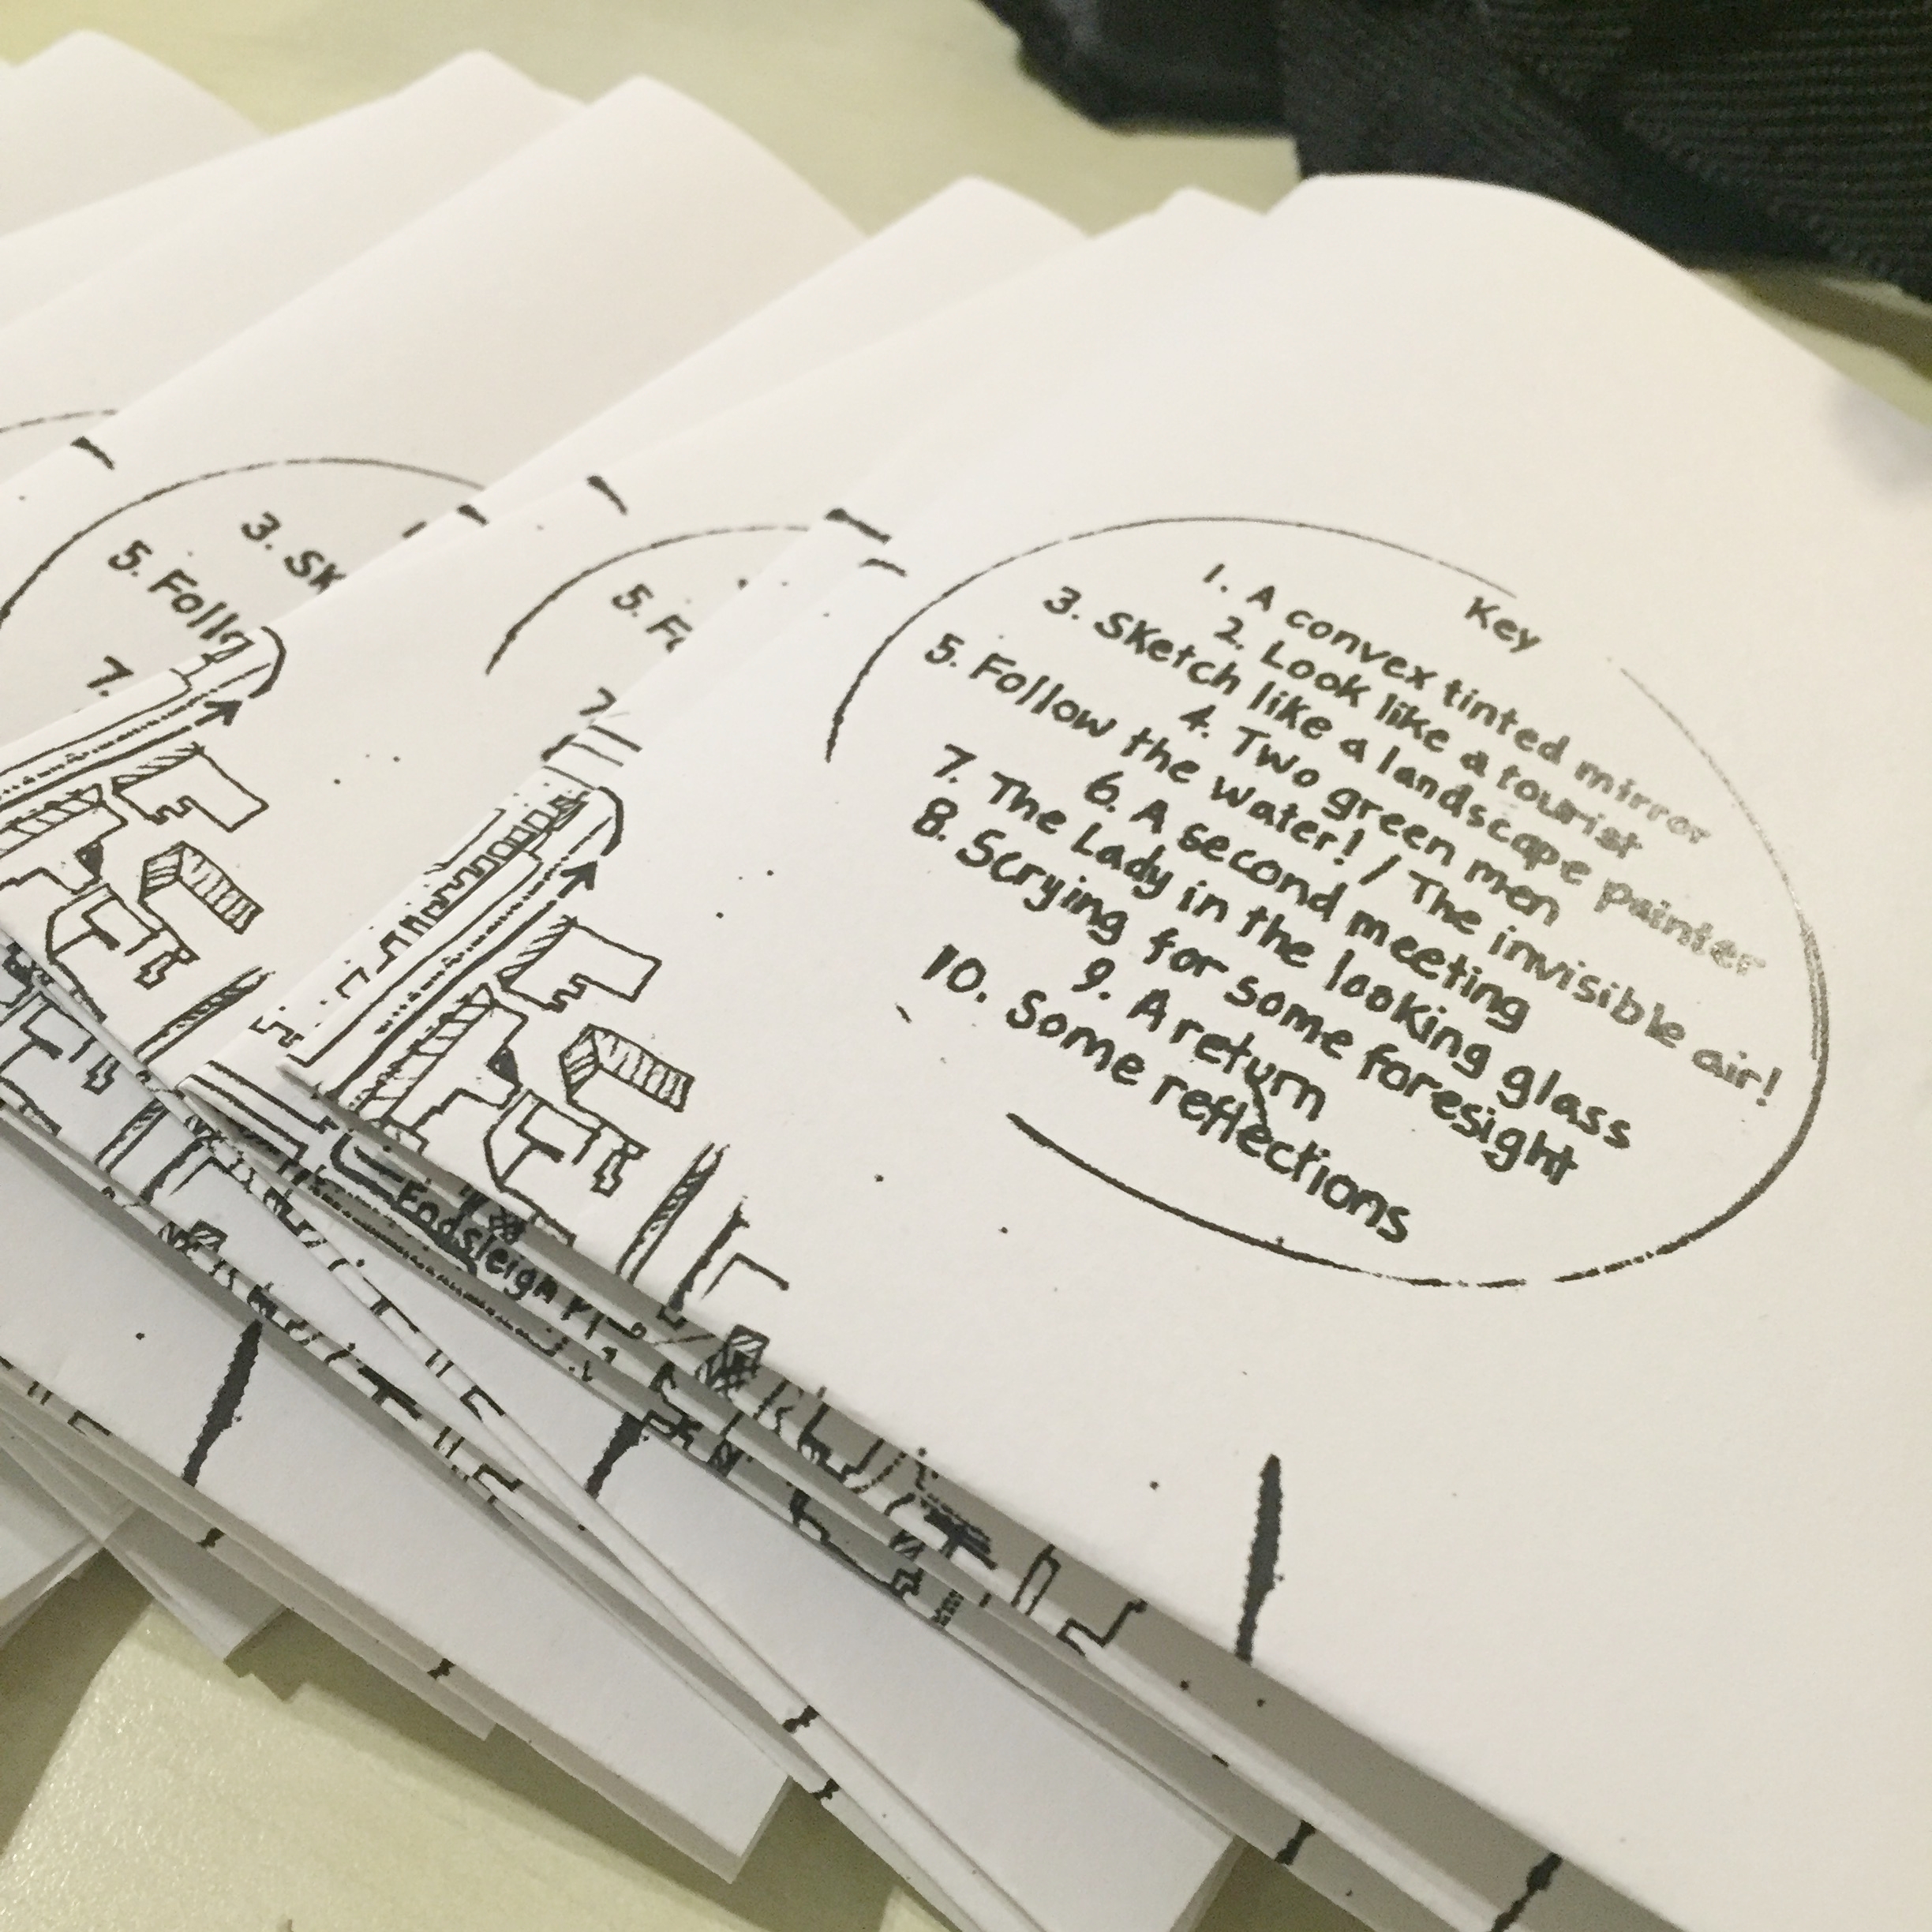 Key
1. A convex tinted mirror
2. Look like a tourist
3. Sketch like a landscape painter
4. Two green men
5. Follow the water! / The invisible air!
6. A second meeting
7. The Lady in the looking glass
8. Scrying for some foresight
9. A return
10. Some reflections
3. Sk
5. Follo
7.
5. Fo
7.
Endsleigh Pl